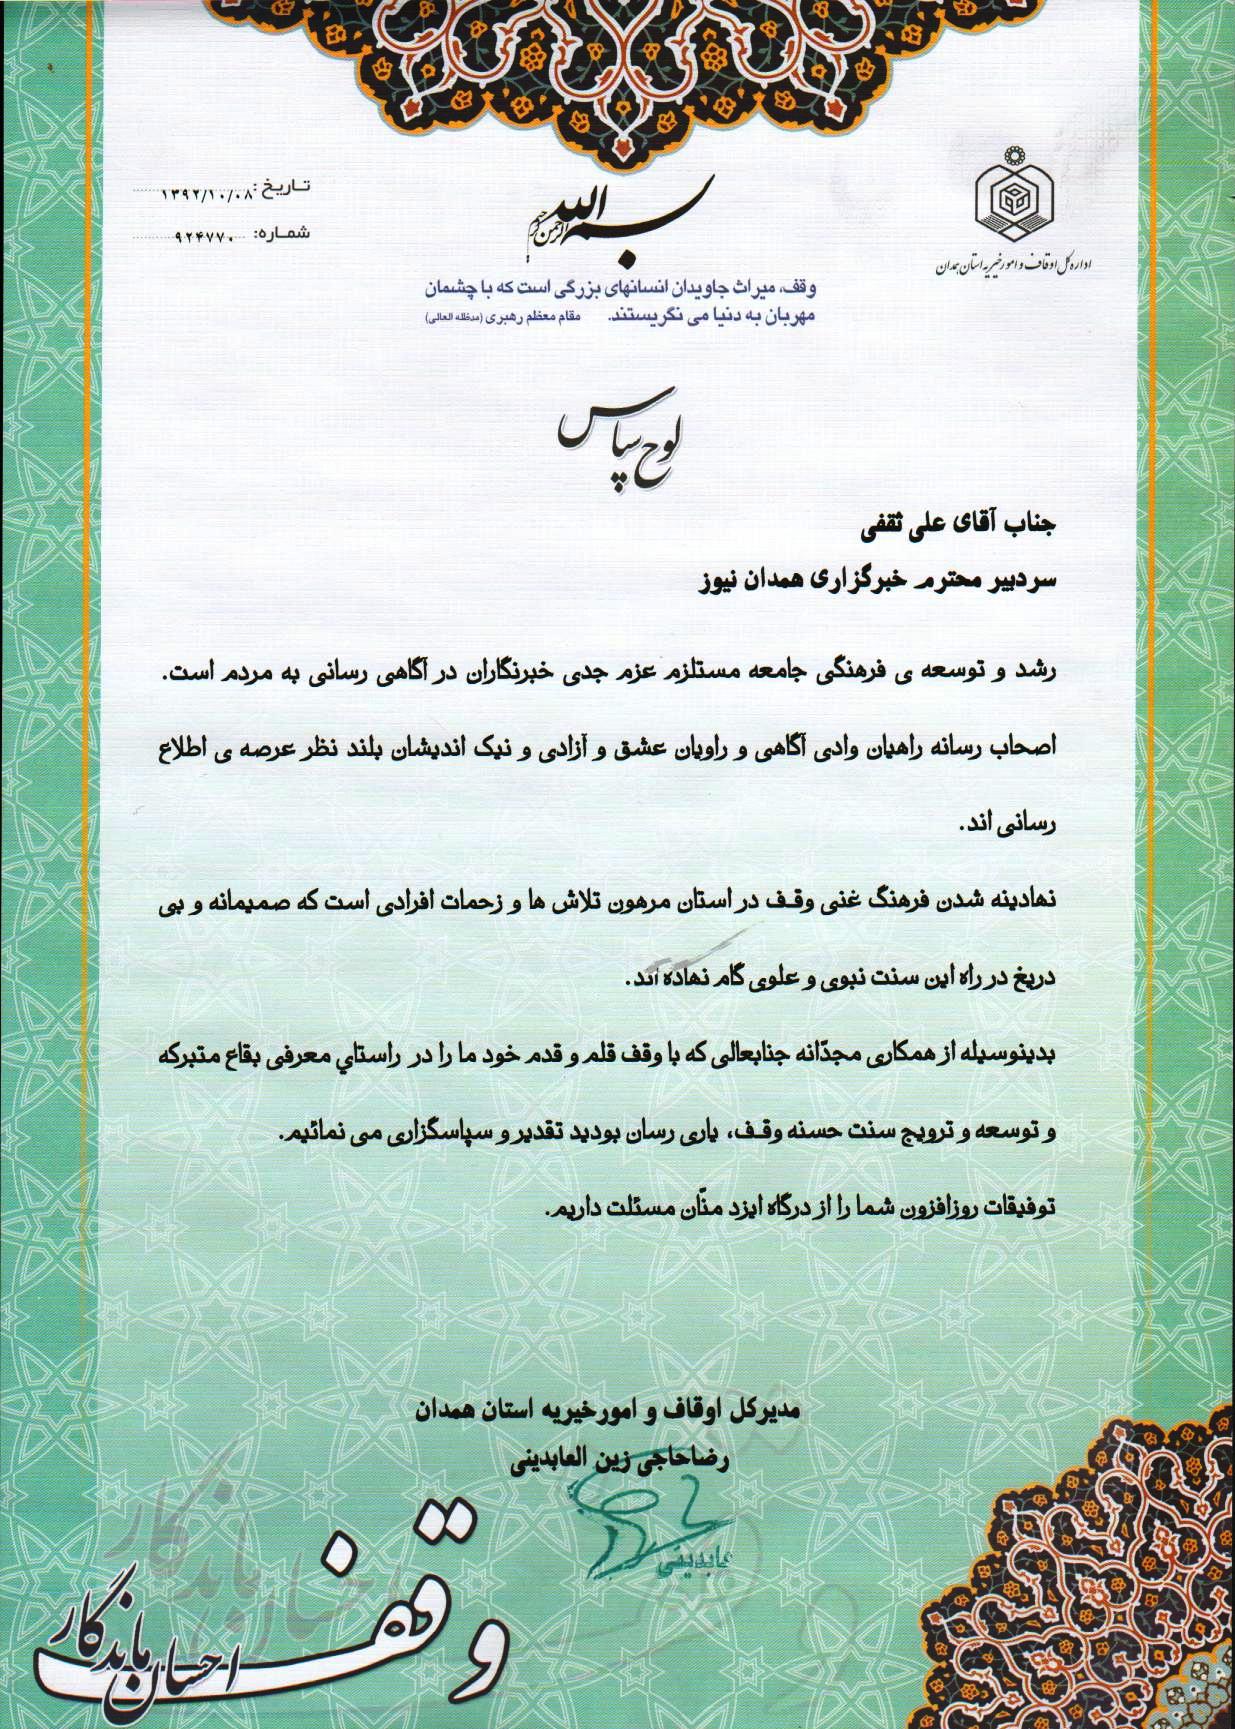 بسم الله الرحمن الرحیم
تاریخ: ۱۳۹۲/۱۰/۰۸
شماره: ۹۲۴۷۷۰
اداره کل اوقاف و امور خیریه استان همدان
وقف، میراث جاویدان انسانهای بزرگی است که با چشمان
مهربان به دنیا می نگریستند. مقام معظم رهبری (مدظله العالی)
لوح سپاس
جناب آقای علی ثقفی
سردبیر محترم خبرگزاری همدان نیوز
رشد و توسعه ی فرهنگی جامعه مستلزم عزم جدی خبرنگاران در آگاهی رسانی به مردم است.
اصحاب رسانه راهیان وادی آگاهی و راویان عشق و آزادی و نیک اندیشان بلند نظر عرصه ی اطلاع
رسانی اند.
نهادینه شدن فرهنگ غنی وقف در استان مرهون تلاش ها و زحمات افرادی است که صمیمانه و بی
دریغ در راه این سنت نبوی و علوی گام نهاده اند.
بدینوسیله از همکاری مجدّانه جنابعالی که با وقف قلم و قدم خود ما را در راستاي معرفی بقاع متبرکه
و توسعه و ترویج سنت حسنه وقف، یاری رسان بودید تقدیر و سپاسگزاری می نمائیم.
توفیقات روزافزون شما را از درگاه ایزد منّان مسئلت داریم.
مدیرکل اوقاف و امورخیریه استان همدان
رضاحاجی زین العابدینی
عابدینی
وقف
احسان ماندگار